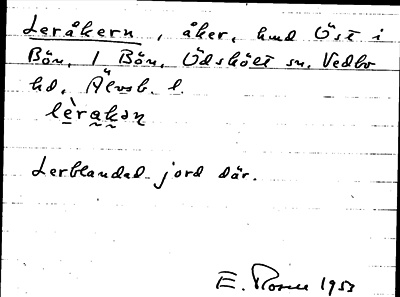 Leråkern, åker, hmd Öst i
Bön, 1 Bön, Ödskölt sn, Vedbo
hd, Älvsb. l.
lèrakən
Lerblandad jord där.
E. Rosen 1953